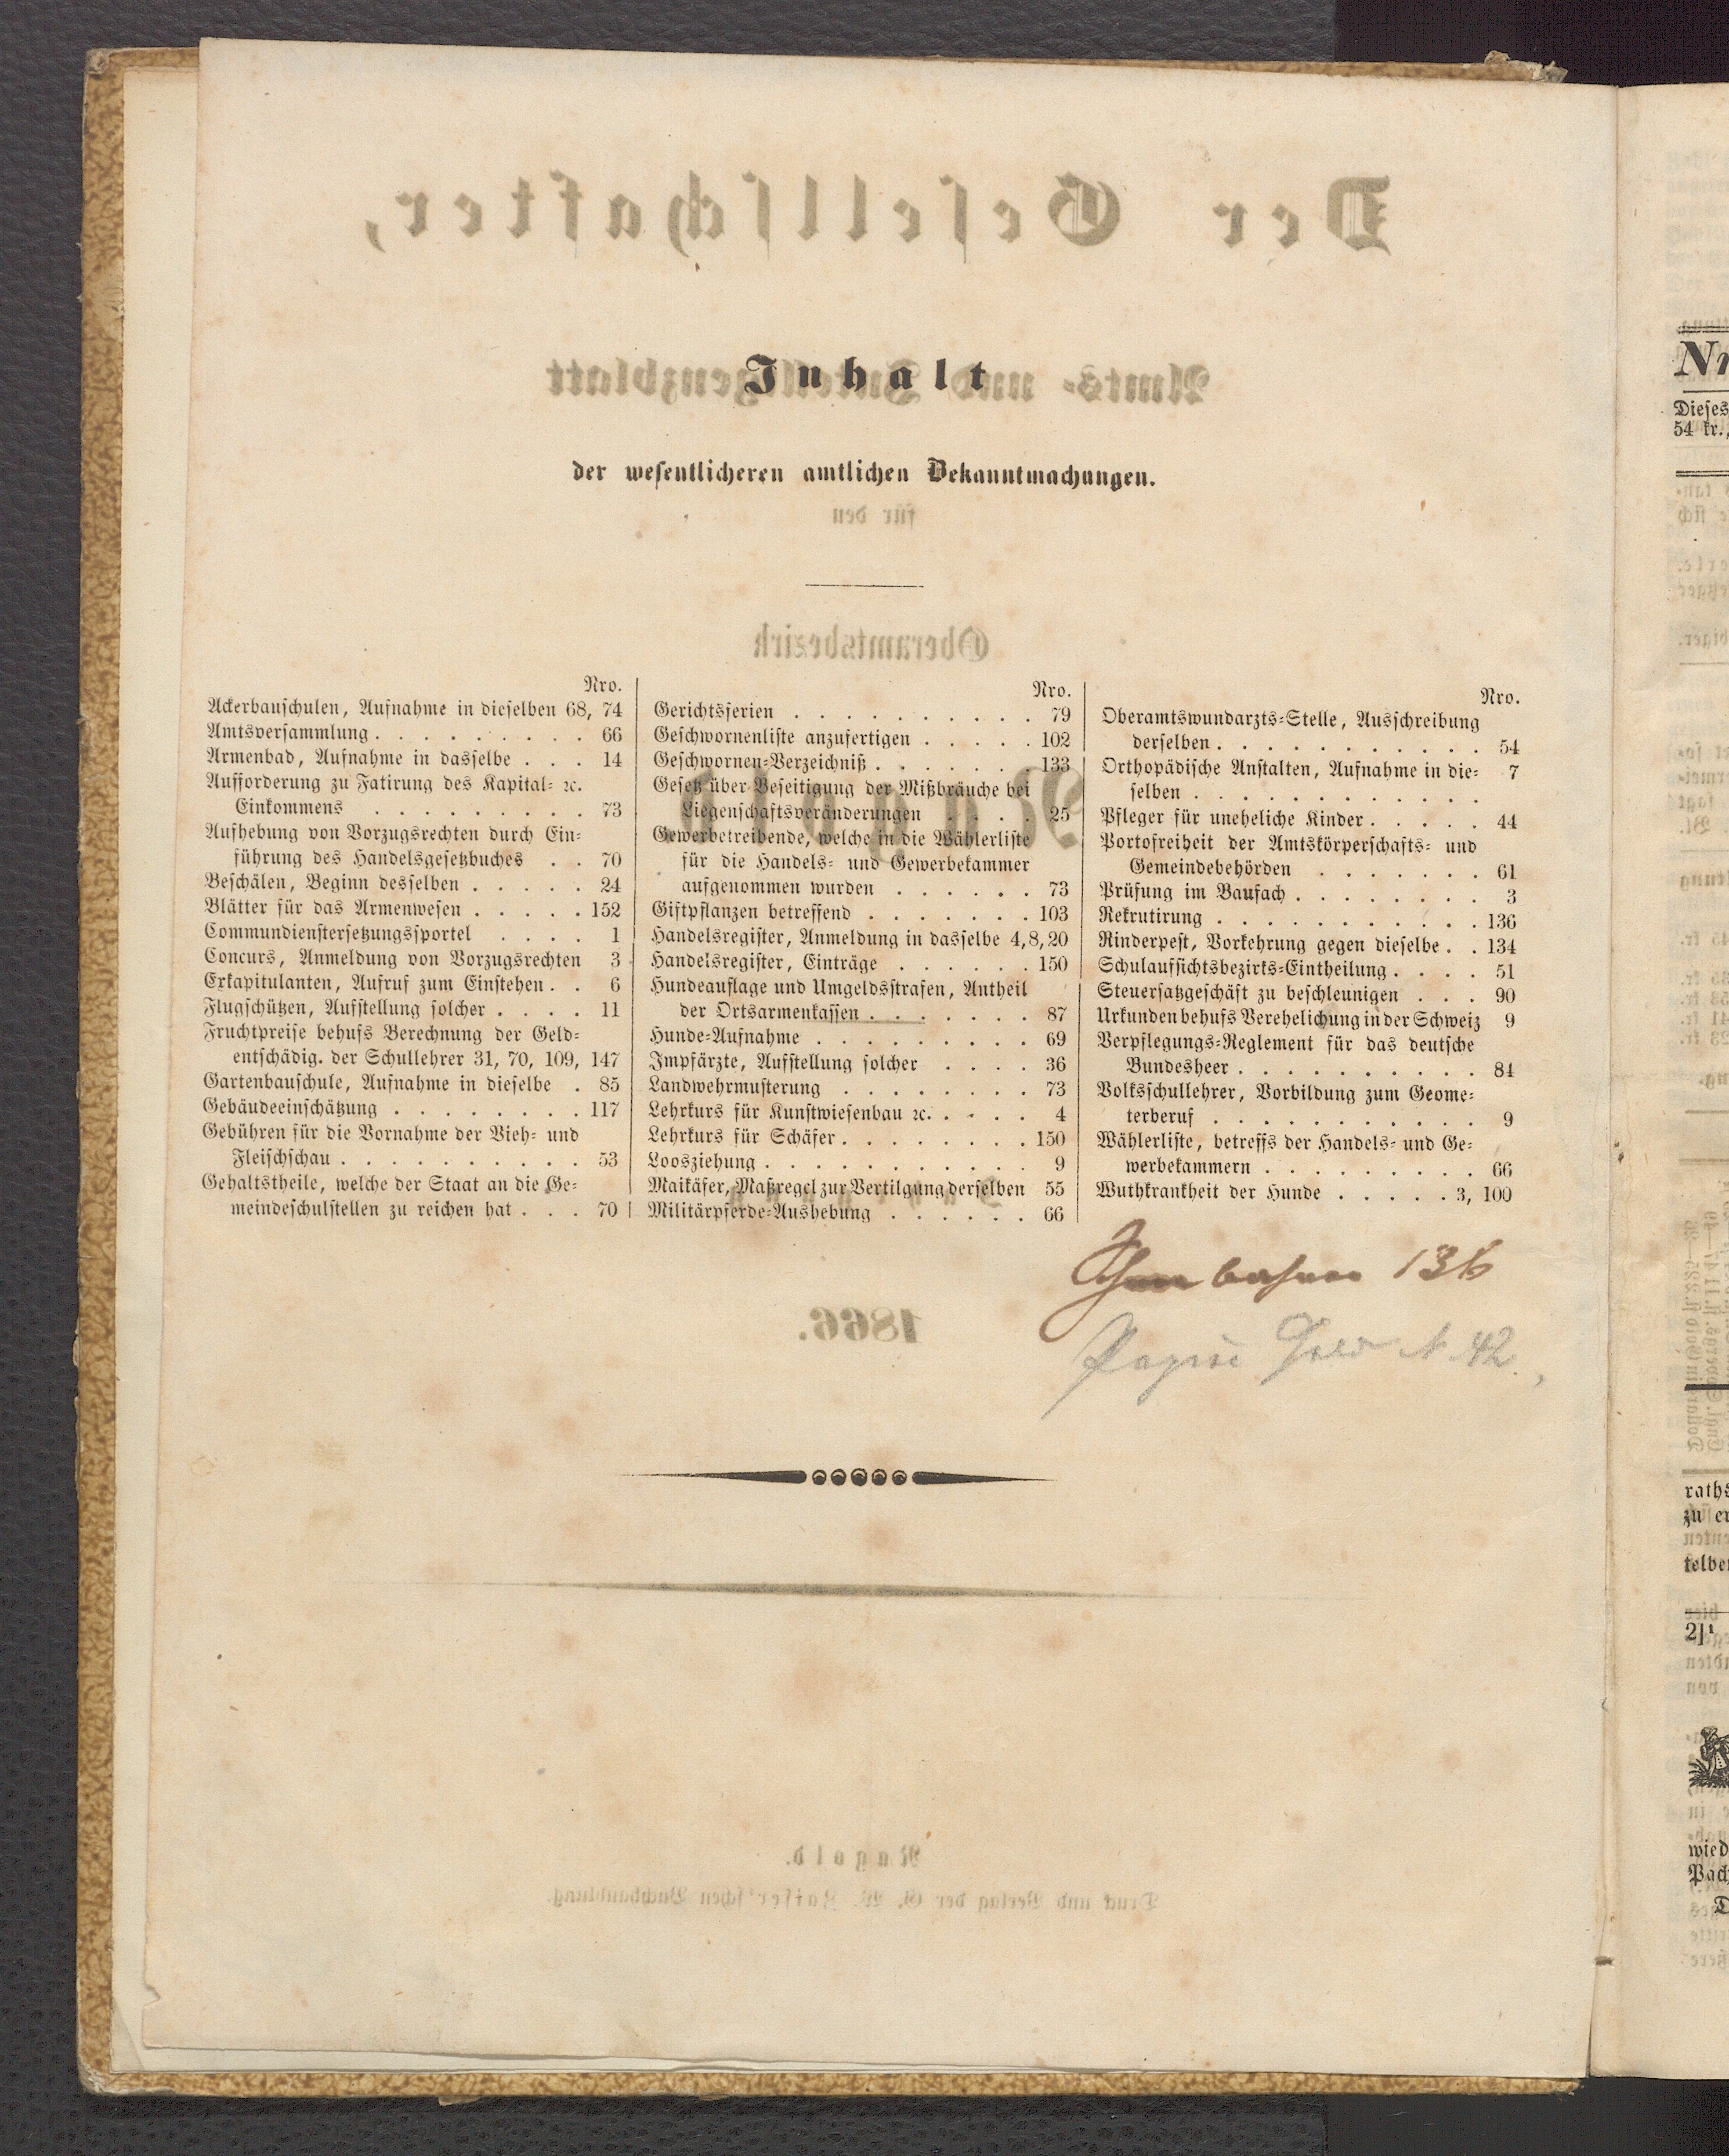 Inhalt
der wesentlicheren amtlichen Bekanntmachungen.
Nro.
Ackerbauschulen, Aufnahme in dieselben 68, 74
Amtsversammlung . . . . . . . . . 66
Armenbad, Aufnahme in dasselbe . . . 14
Aufforderung zu Fatirung des Kapital- ꝛc.
Einkommens . . . . . . . . . 73
Aufhebung von Vorzugsrechten durch Ein-
führung des Handelsgesetzbuches . . 70
Beschälen, Beginn desselben . . . . . 24
Blätter für das Armenwesen . . . . . 152
Commundienstersetzungssportel . . . . 1
Concurs, Anmeldung von Vorzugsrechten 3
Exkapitulanten, Aufruf zum Einstehen . . 6
Flugschützen, Aufstellung solcher . . . . 11
Fruchtpreise behufs Berechnung der Geld-
entschädig. der Schullehrer 31, 70, 109, 147
Gartenbauschule, Aufnahme in dieselbe . 85
Gebäudeeinschätzung . . . . . . . . 117
Gebühren für die Vornahme der Vieh- und
Fleischschau . . . . . . . . . . 53
Gehaltstheile, welche der Staat an die Ge-
meindeschulstellen zu reichen hat . . . 70
Nro.
Gerichtsferien . . . . . . . . . . 79
Geschwornenliste anzufertigen . . . . . 102
Geschwornen-Verzeichniß . . . . . . . 133
Gesetz über Beseitigung der Mißbräuche bei
Liegenschaftsveränderungen . . . . 25
Gewerbetreibende, welche in die Wählerliste
für die Handels- und Gewerbekammer
aufgenommen wurden . . . . . . 73
Giftpflanzen betreffend . . . . . . . 103
Handelsregister, Anmeldung in dasselbe 4, 8, 20
Handelsregister, Einträge . . . . . . 150
Hundeauflage und Umgeldsstrafen, Antheil
der Ortsarmenkassen . . . . . . . 87
Hunde-Aufnahme . . . . . . . . . 69
Impfärzte, Aufstellung solcher . . . . 36
Landwehrmusterung . . . . . . . . 73
Lehrkurs für Kunstwiesenbau ꝛc. . . . . 4
Lehrkurs für Schäfer . . . . . . . . 150
Loosziehung . . . . . . . . . . . 9
Maikäfer, Maßregel zur Vertilgung derselben 55
Militärpferde-Aushebung . . . . . . 66
Nro.
Oberamtswundarzts-Stelle, Ausschreibung
derselben . . . . . . . . . . . 54
Orthopädische Anstalten, Aufnahme in die- 7
selben . . . . . . . . . . . .
Pfleger für uneheliche Kinder . . . . . 44
Portofreiheit der Amtskörperschafts- und
Gemeindebehörden . . . . . . . 61
Prüfung im Baufach . . . . . . . . 3
Rekrutirung . . . . . . . . . . . 136
Rinderpest, Vorkehrung gegen dieselbe . . 134
Schulaufsichtsbezirks-Eintheilung . . . . 51
Steuersatzgeschäft zu beschleunigen . . . 90
Urkunden behufs Verehelichung in der Schweiz 9
Verpflegungs-Reglement für das deutsche
Bundesheer . . . . . . . . . . 84
Volksschullehrer, Vorbildung zum Geome-
terberuf . . . . . . . . . . . 9
Wählerliste, betreffs der Handels- und Ge-
werbekammern . . . . . . . . . 66
Wuthkrankheit der Hunde . . . . . 3, 100
136
N. 42.
Nr
Dieses
54 kr.,
raths
zu er
wied
Pach